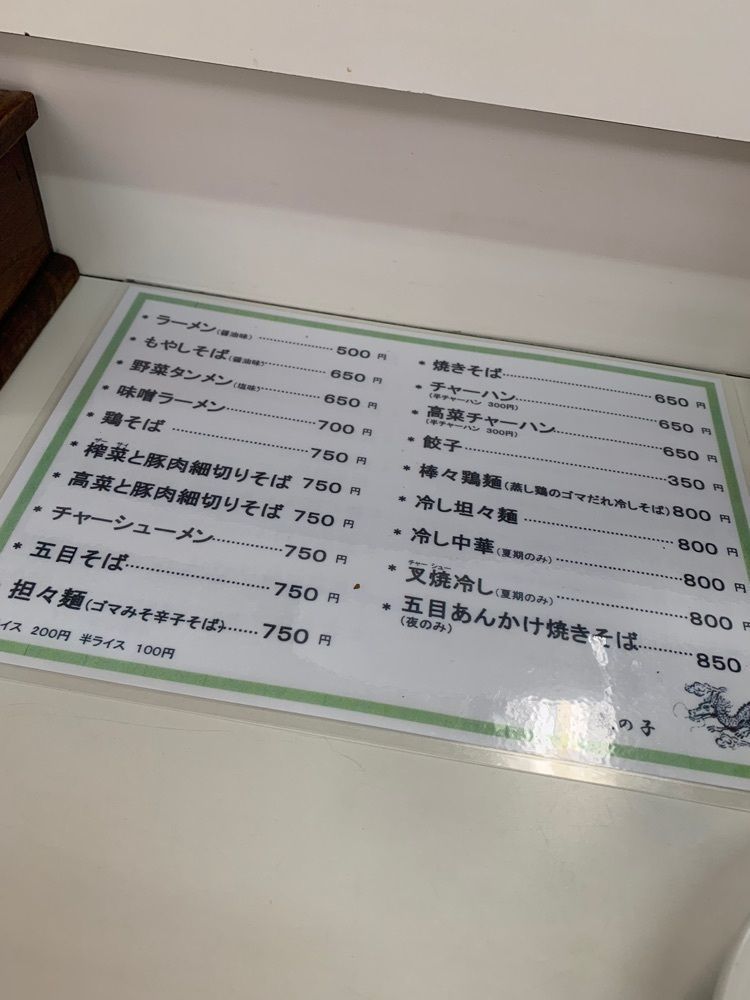 * ラーメン(醤油味)………………… 500 円
* もやしそば(醤油味)…………… 650 円
* 野菜タンメン(塩味)…………… 650 円
味噌ラーメン………………… 700 円
* 鶏そば ………………………… 750 円
ザー サイ
* 搾菜と豚肉細切りそば 750 円
* 高菜と豚肉細切りそば 750 円
* チャーシューメン…………… 750 円
* 五目そば……………………… 750 円
担々麺(ゴマみそ辛子そば)…… 750 円
イス 200円 半ライス 100円
* 焼きそば……………………… 650 円
* チャーハン…………………… 650 円
(半チャーハン 300円)
* 高菜チャーハン……………… 650 円
(半チャーハン 300円)
* 餃子…………………………… 350 円
* 棒々鶏麺(蒸し鶏のゴマだれ冷しそば) 800 円
* 冷し坦々麺 ………………… 800 円
* 冷し中華(夏期のみ)………… 800 円
チャー シュー
* 叉焼冷し(夏期のみ)………… 800 円
* 五目あんかけ焼きそば……… 850
(夜のみ)
の子